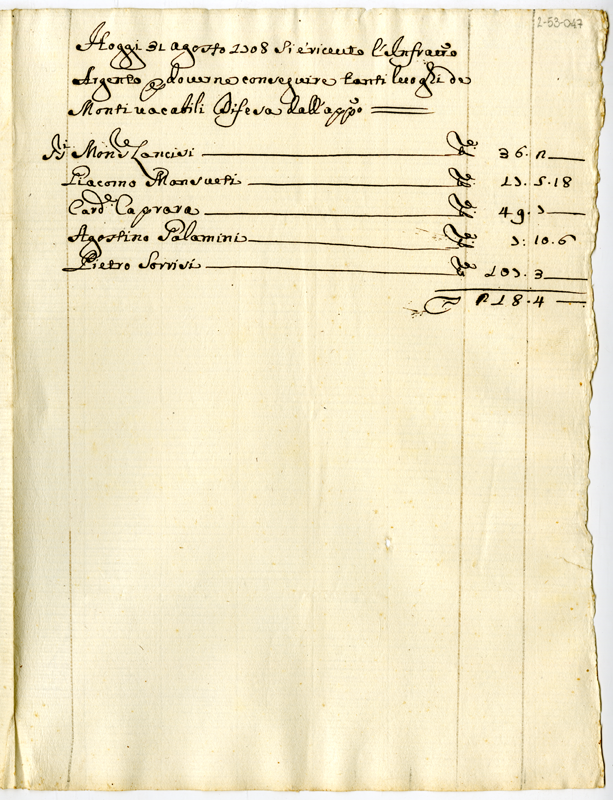 2-53-047
Hoggi 31 agosto 1708 Si è riceuuto l'Infra͞tto
Argento p douerne conseguire tanti luoghi de
Monti uacabili Difesa dall'app͞o
Monsre Lancisi 36.
Giacomo Mansueti 17.5.18
Carde Caprara 49.7
Agostino Palamini 7:10.6
Pietro Sorrisi 107.3
218.4